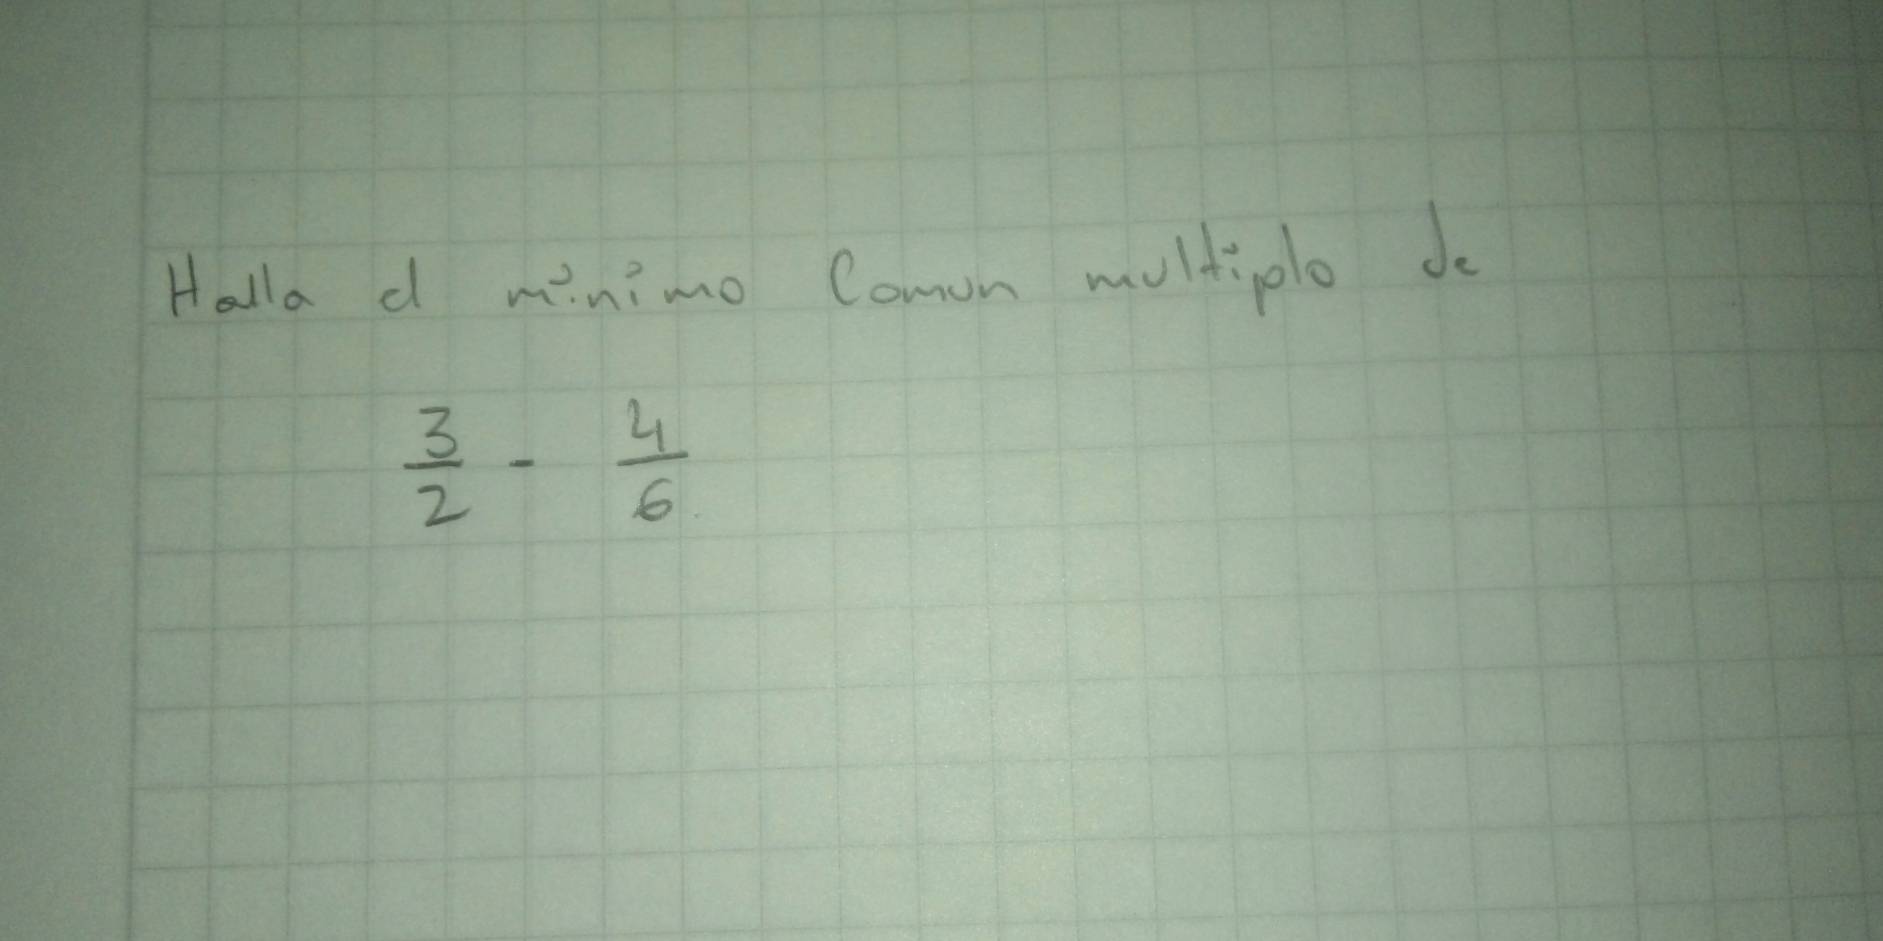 Halla el mínimo Comun multiplo de
3/2 - 4/6